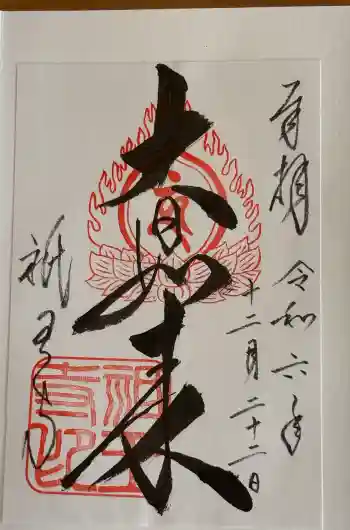 奉拝
令和六年
十二月二十二日
大日如来